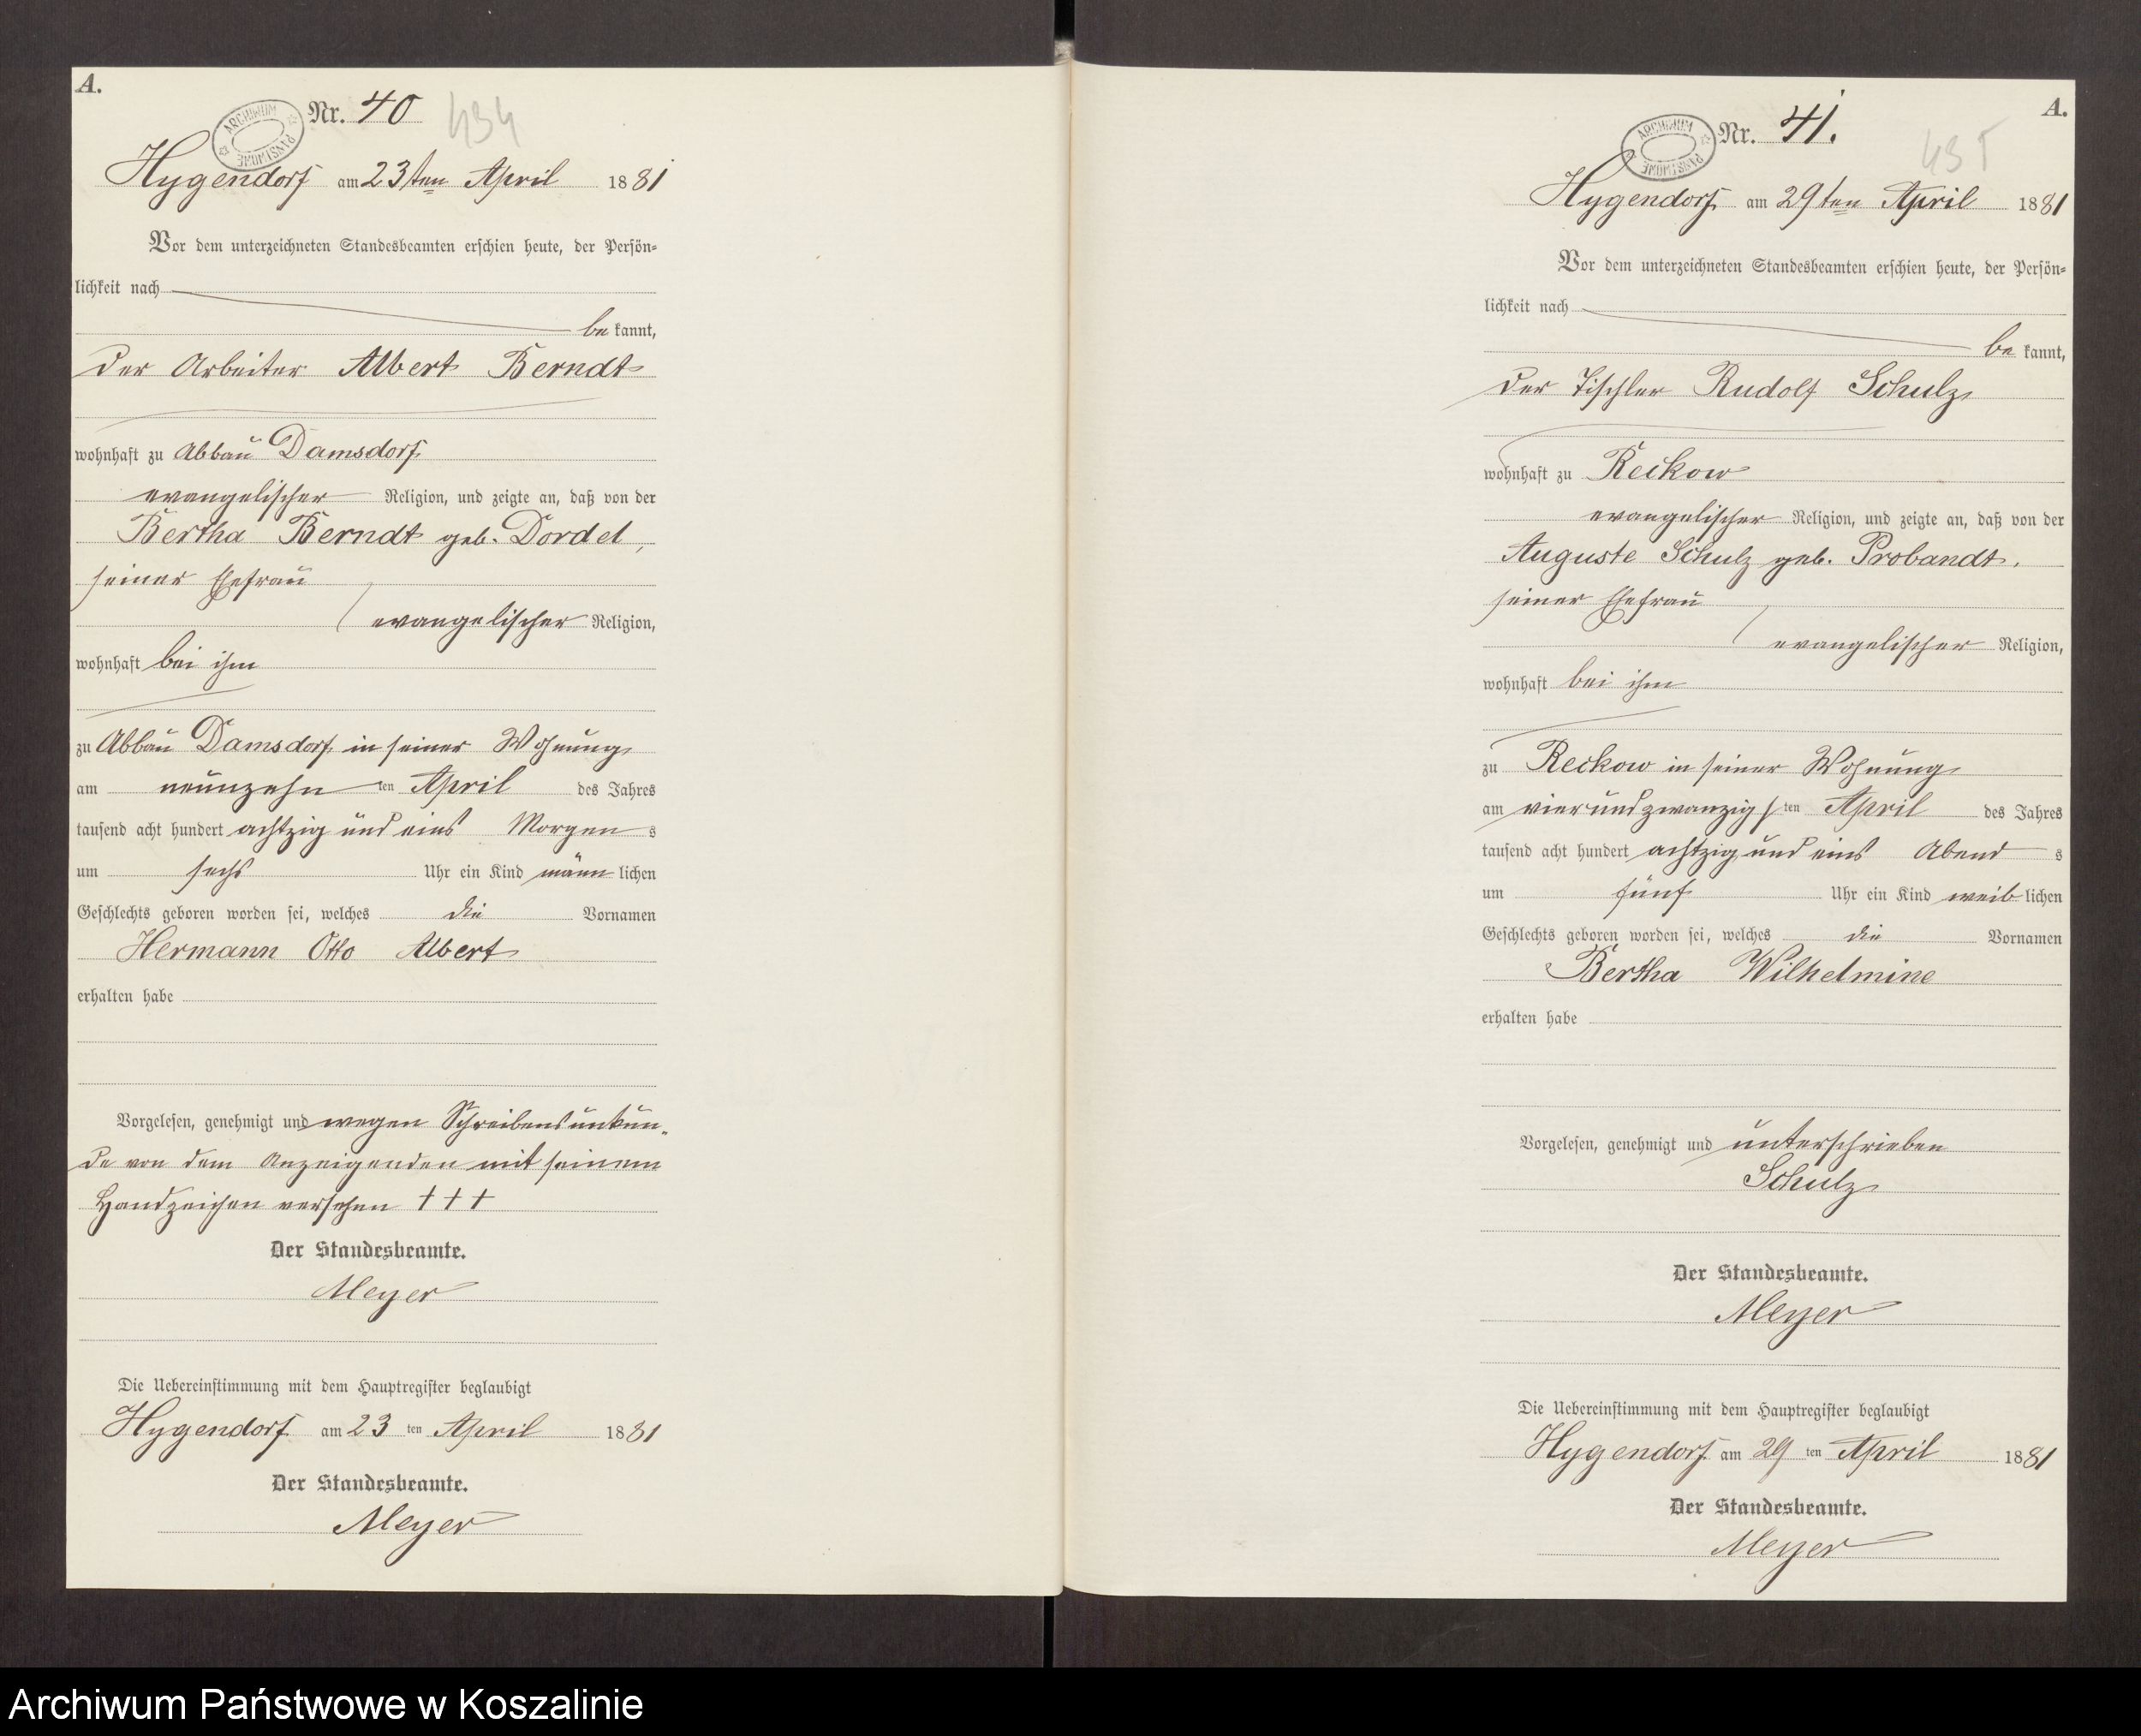 A.
Nr. 40
434
ARCHIWUM PAŃSTWOWE
Hygendorf am 23ten April 1881
Vor dem unterzeichneten Standesbeamten erschien heute, der Persön-
lichkeit nach
be kannt,
der Arbeiter Albert Berndt
wohnhaft zu Abbau Damsdorf
evangelischer Religion, und zeigte an, daß von der
Bertha Berndt geb. Dordel,
seiner Ehefrau
evangelischer Religion,
wohnhaft bei ihm
zu Abbau Damsdorf in seiner Wohnung
am neunzehn ten April des Jahres
tausend acht hundert achtzig und eins Morgen s
um sechs Uhr ein Kind männ lichen
Geschlechts geboren worden sei, welches die Vornamen
Hermann Otto Albert
erhalten habe
Vorgelesen, genehmigt und wegen Schreibensunkun-
de von dem Anzeigenden mit seinem
Handzeichen versehen +++
Der Standesbeamte.
Meyer
Die Uebereinstimmung mit dem Hauptregister beglaubigt
Hygendorf am 23 ten April 1881
Der Standesbeamte.
Meyer
A.
Nr. 41.
435
ARCHIWUM PAŃSTWOWE
Hygendorf am 29ten April 1881
Vor dem unterzeichneten Standesbeamten erschien heute, der Persön-
lichkeit nach
be kannt,
der Tischler Rudolf Schulz
wohnhaft zu Reckow
evangelischer Religion, und zeigte an, daß von der
Auguste Schulz geb. Probandt,
seiner Ehefrau
evangelischer Religion,
wohnhaft bei ihm
zu Reckow in seiner Wohnung
am vierundzwanzig ten April des Jahres
tausend acht hundert achtzig und eins Abend s
um fünf Uhr ein Kind weib lichen
Geschlechts geboren worden sei, welches die Vornamen
Bertha Wilhelmine
erhalten habe
Vorgelesen, genehmigt und unterschrieben
Schulz
Der Standesbeamte.
Meyer
Die Uebereinstimmung mit dem Hauptregister beglaubigt
Hygendorf am 29 ten April 1881
Der Standesbeamte.
Meyer
Archiwum Państwowe w Koszalinie